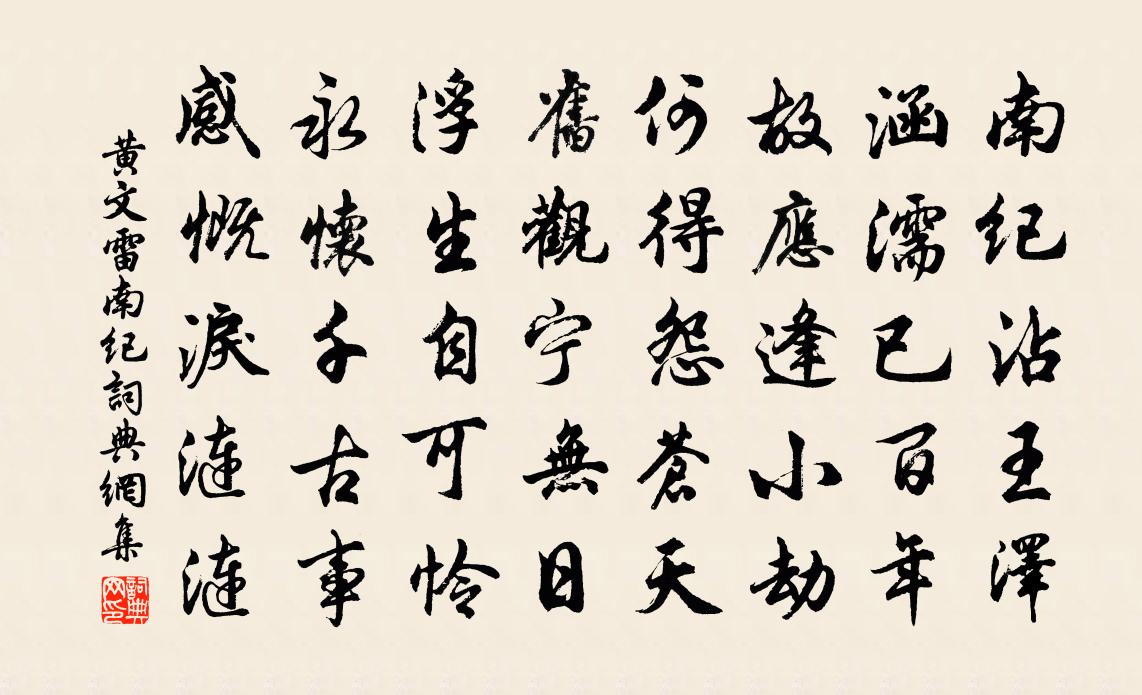 南紀沾王澤
涵濡已百年
故應逢小劫
何得怨蒼天
舊觀宁無日
浮生自可怜
永懷千古事
感慨淚漣漣
黃文雷南紀詞典網集
詞典网印